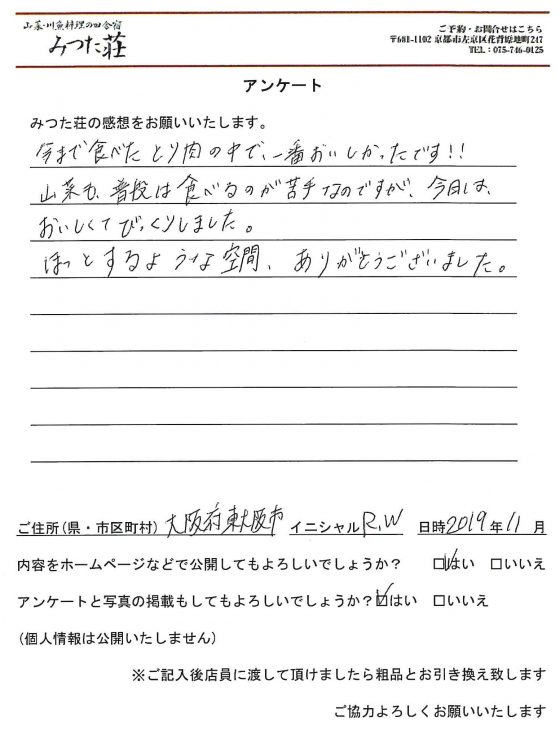 山菜・川魚料理の田舎宿
みつた荘
ご予約・お問合せはこちら
〒601-1102 京都市左京区花背原地町247
TEL:075-746-0125
アンケート
みつた荘の感想をお願いいたします。
今まで食べたとり肉の中で、一番おいしかったです!!
山菜も、普段は食べるのが苦手なのですが、今日は、
おいしくてびっくりしました。
ほっとするような空間、ありがとうございました。
ご住所(県・市区町村) 大阪府東大阪市 イニシャル R,W 日時 2019年11月
内容をホームページなどで公開してもよろしいでしょうか? ☑はい □いいえ
アンケートと写真の掲載もしてもよろしいでしょうか? ☑はい □いいえ
(個人情報は公開いたしません)
※ご記入後店員に渡して頂けましたら粗品とお引き換え致します
ご協力よろしくお願いいたします